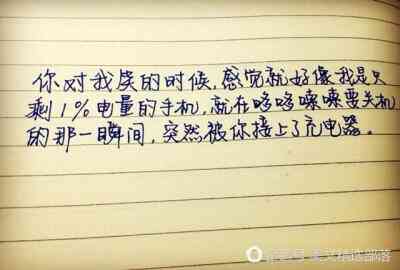 你对我笑的时候,感觉就好像我是只
剩1%电量的手机,就在哆哆嗦嗦要关机
的那一瞬间,突然被你接上了充电器。